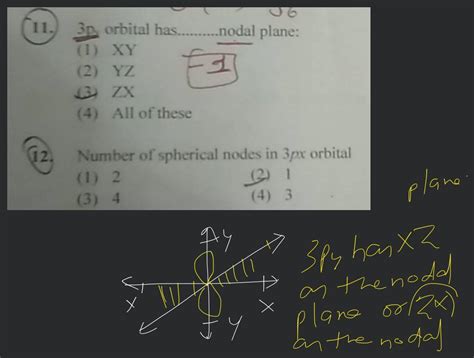 11. 3py orbital has..........nodal plane:
(1) XY
(2) YZ
(3) ZX
(4) All of these
12. Number of spherical nodes in 3px orbital
(1) 2
(2) 1
(3) 4
(4) 3
plane.
y
X
X
y
3py has XZ
as the nodal
plane or (ZX)
as the nodal